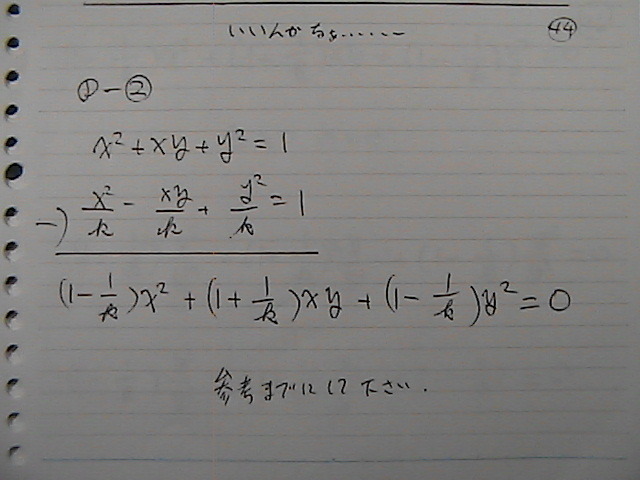 いいんかちょ‥‥‥ー
44
①－②
x² + xy + y² = 1
－) x²/k － xy/k + y²/k = 1
(1－1/k)x² + (1+1/k)xy + (1－1/k)y² = 0
参考までにして下さい.